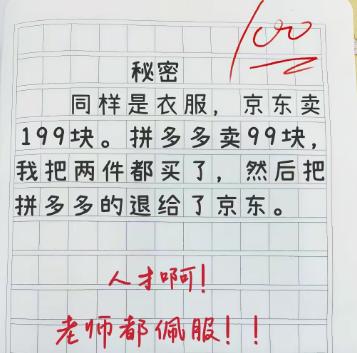 100
秘密
同样是衣服，京东卖
199块。拼多多卖99块，
我把两件都买了，然后把
拼多多的退给了京东。
人才啊！
老师都佩服！！